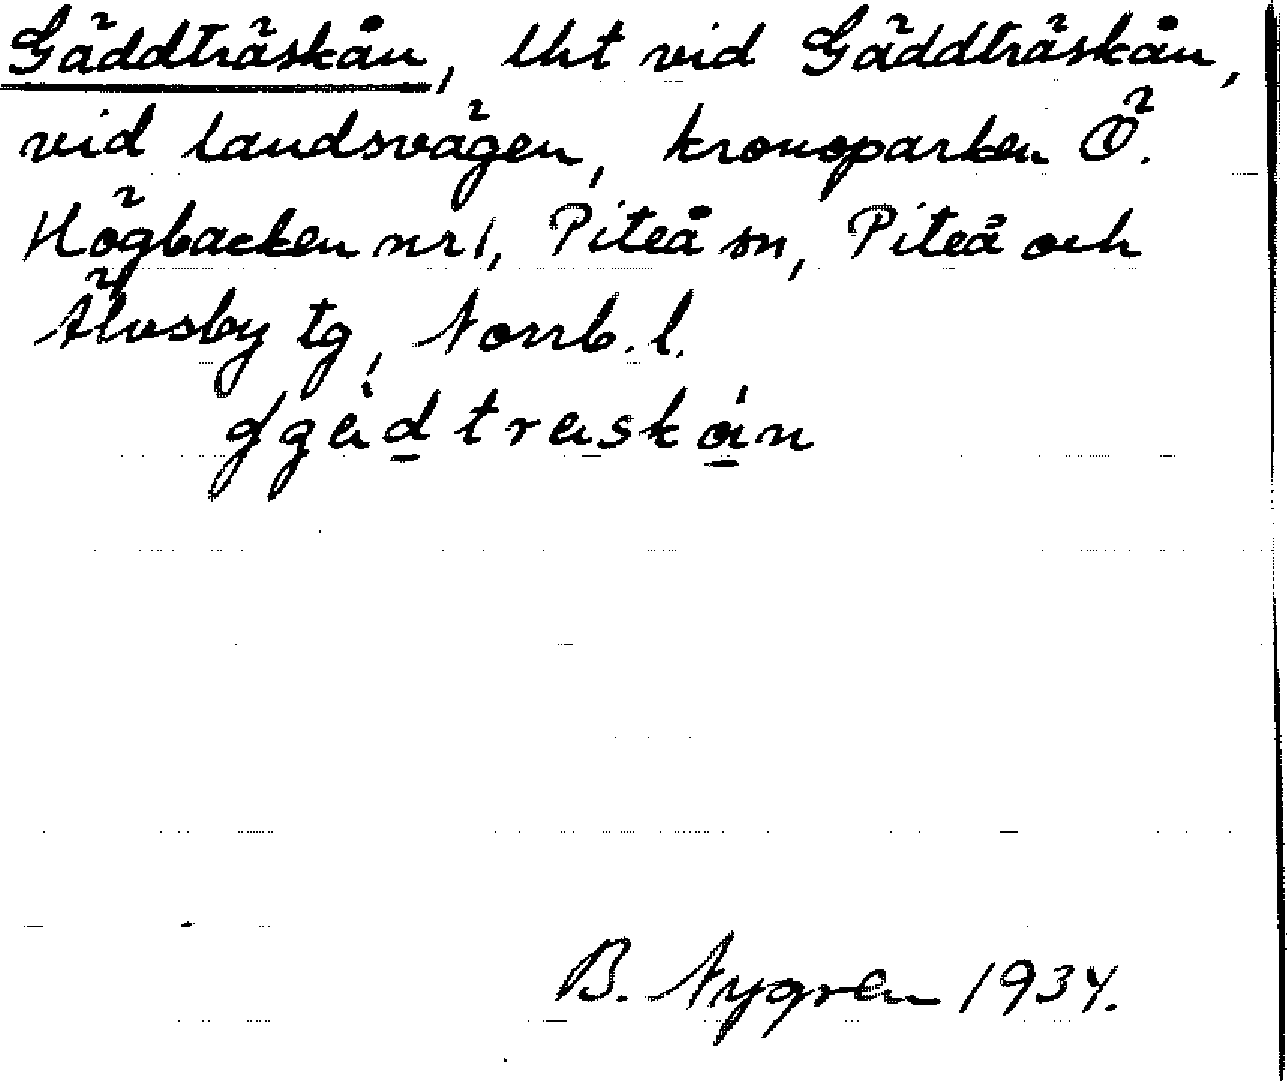 Gäddträskån, lht vid Gäddträskån,
vid landsvägen, kronoparken Ö.
Högbacken nr 1, Piteå sn, Piteå och
Älvsby tg, Norrb. l.
B. Nygren 1934.